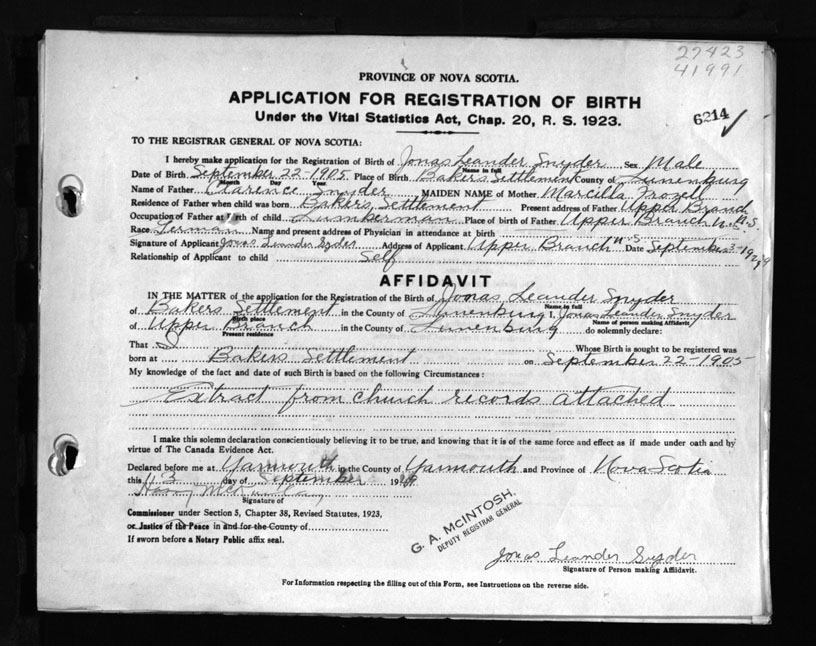 27423
41991
6214 ✓
PROVINCE OF NOVA SCOTIA.
APPLICATION FOR REGISTRATION OF BIRTH
Under the Vital Statistics Act, Chap. 20, R. S. 1923.
TO THE REGISTRAR GENERAL OF NOVA SCOTIA:
I hereby make application for the Registration of Birth of Jonas Leander Snyder Sex Male
Name in full
Date of Birth September 22-1905 Place of Birth Bakers Settlement County of Lunenburg
Month Day Year
Name of Father Clarence Snyder MAIDEN NAME of Mother Marcilla
Residence of Father when child was born Bakers Settlement Present address of Father Upper Branch
Occupation of Father at birth of child Lumberman Place of birth of Father Upper Branch N.S.
Race German Name and present address of Physician in attendance at birth
Signature of Applicant Jonas Leander Snyder Address of Applicant Upper Branch N.S. Date September 3-19
Relationship of Applicant to child Self
AFFIDAVIT
IN THE MATTER of the application for the Registration of the Birth of Jonas Leander Snyder
Name in full
of Bakers Settlement in the County of Lunenburg I, Jonas Leander Snyder
Birth place Name of person making Affidavit
of Upper Branch in the County of Lunenburg do solemnly declare:
Present residence
That I Whose Birth is sought to be registered was
born at Bakers Settlement on September 22-1905
My knowledge of the fact and date of such Birth is based on the following Circumstances:
Extract from church records attached
I make this solemn declaration conscientiously believing it to be true, and knowing that it is of the same force and effect as if made under oath and by
virtue of The Canada Evidence Act.
Declared before me at Yarmouth in the County of Yarmouth and Province of Nova Scotia
this 3 day of September 19
Signature of
Commissioner under Section 5, Chapter 38, Revised Statutes, 1923,
or Justice of the Peace in and for the County of
If sworn before a Notary Public affix seal.
G. A. McINTOSH.
DEPUTY REGISTRAR GENERAL
Jonas Leander Snyder
Signature of Person making Affidavit.
For Information respecting the filling out of this Form, see Instructions on the reverse side.